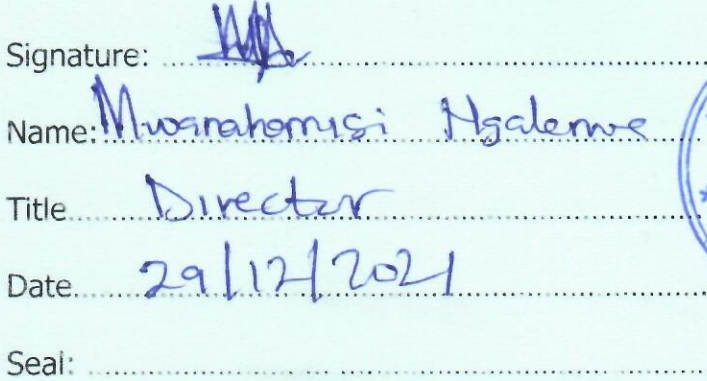 Signature:
Name: Mwanahamisi Ngalemwe
Title Director
Date 29/12/2021
Seal: